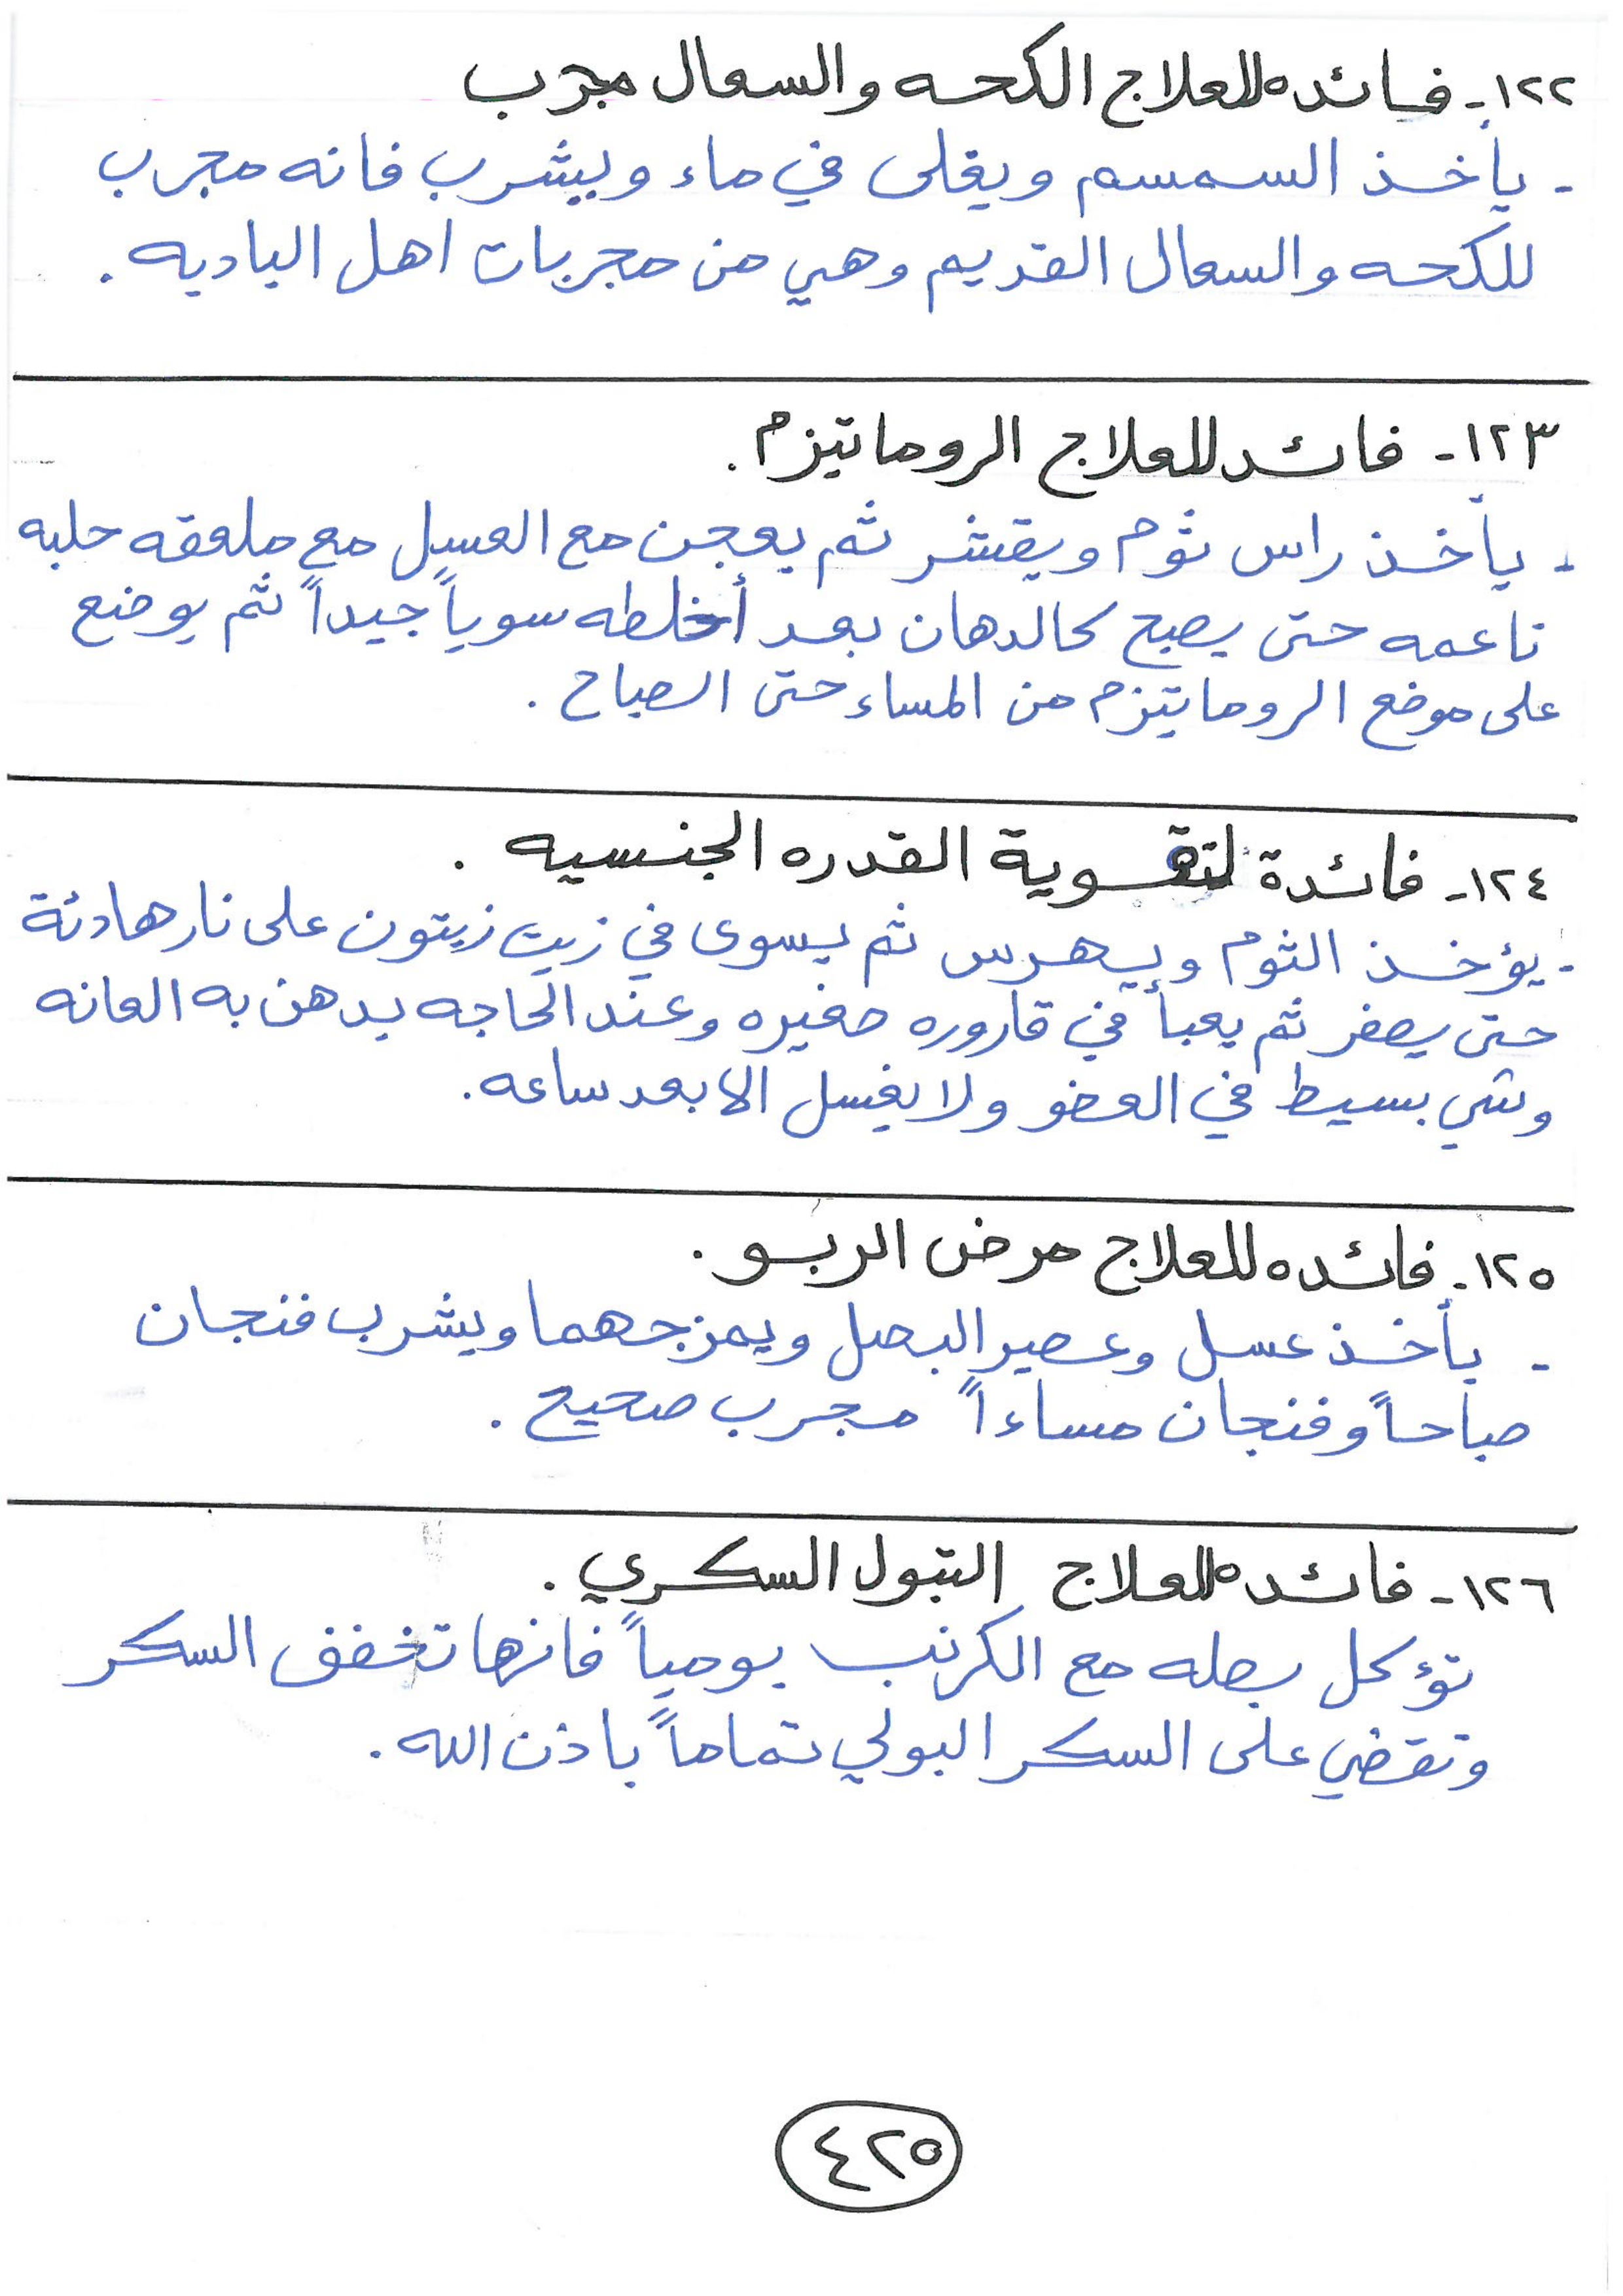 ١٢٢- فائده للعلاج الكحه والسعال مجرب
- يأخذ السمسم ويغلى في ماء ويشرب فانه مجرب
للكحه والسعال القديم وهي من مجربات اهل الباديه .
١٢٣- فائد للعلاج الروماتيزم .
- يأخذ راس ثوم ويقشر ثم يعجن مع العسل مع ملعقه حلبه
ناعمه حتى يصبح كالدهان بعد أخلطه سوياً جيداً ثم يوضع
على موضع الروماتيزم من المساء حتى الصباح .
١٢٤- فائدة لتقوية القدره الجنسيه .
- يؤخذ الثوم ويهرس ثم يسوى في زيت زيتون على نار هادئة
حتى يصفر ثم يعبأ في قاروره صغيره وعند الحاجه يدهن به العانه
وشي بسيط في العضو ولا يغسل الا بعد ساعه .
١٢٥- فائده للعلاج مرض الربو .
- يأخذ عسل وعصير البصل ويمزجهما ويشرب فنجان
صباحاً وفنجان مساءاً مجرب صحيح .
١٢٦- فائده للعلاج التبول السكري .
تؤكل بصله مع الكرنب يومياً فانها تخفف السكر
وتقضي على السكر البولي تماماً باذن الله .
٤٢٥